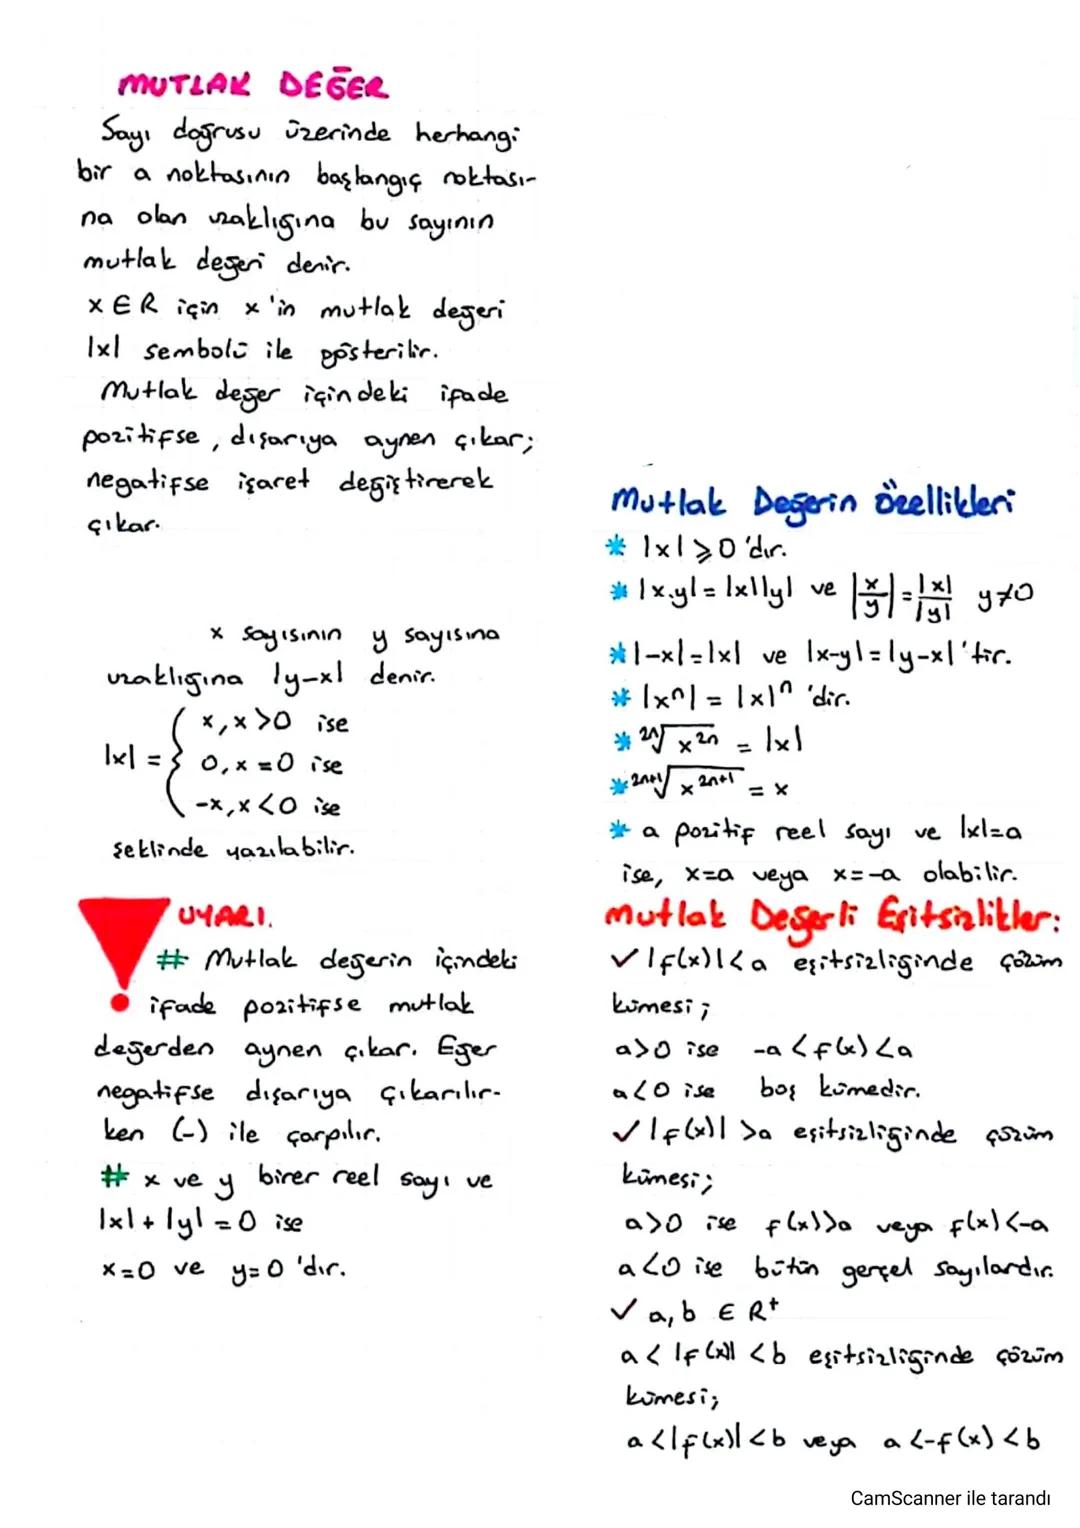 MUTLAK DEĞER
Sayı doğrusu üzerinde herhangi
bir a noktasının başlangıç noktası-
na olan uzaklığına bu sayının
mutlak değeri denir.
x ∈ R için x'in mutlak değeri
|x| sembolü ile gösterilir.
Mutlak değer içindeki ifade
pozitifse, dışarıya aynen çıkar;
negatifse işaret değiştirerek
çıkar.
x sayısının y sayısına
uzaklığına |y-x| denir.
|x| = { x, x>0 ise
0, x=0 ise
-x, x<0 ise
şeklinde yazılabilir.
! UYARI.
# Mutlak değerin içindeki
ifade pozitifse mutlak
değerden aynen çıkar. Eğer
negatifse dışarıya çıkarılır-
ken (-) ile çarpılır.
# x ve y birer reel sayı ve
|x| + |y| = 0 ise
x=0 ve y=0 'dır.
Mutlak Değerin Özellikleri
* |x| ⩾ 0 'dır.
* |x.y| = |x||y| ve |x/y| = |x|/|y| y≠0
* |-x| = |x| ve |x-y| = |y-x| 'tir.
* |xⁿ| = |x|ⁿ 'dir.
* ²ⁿ√x²ⁿ = |x|
* ²ⁿ⁺¹√x²ⁿ⁺¹ = x
* a pozitif reel sayı ve |x|=a
ise, x=a veya x=-a olabilir.
Mutlak Değerli Eşitsizlikler:
✓ |f(x)| < a eşitsizliğinde çözüm
kümesi;
a>0 ise -a < f(x) < a
a<0 ise boş kümedir.
✓ |f(x)| > a eşitsizliğinde çözüm
kümesi;
a>0 ise f(x)>a veya f(x)<-a
a<0 ise bütün gerçel sayılardır.
✓ a, b ∈ R⁺
a < |f(x)| < b eşitsizliğinde çözüm
kümesi;
a < |f(x)| < b veya a < -f(x) < b
CamScanner ile tarandı